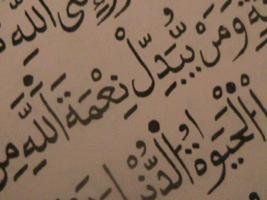 اللّٰهِ
وَمَنْ يُّبَدِّلْ نِعْمَةَ اللّٰهِ مِنْ
الْحَيٰوةُ الدُّنْيَا